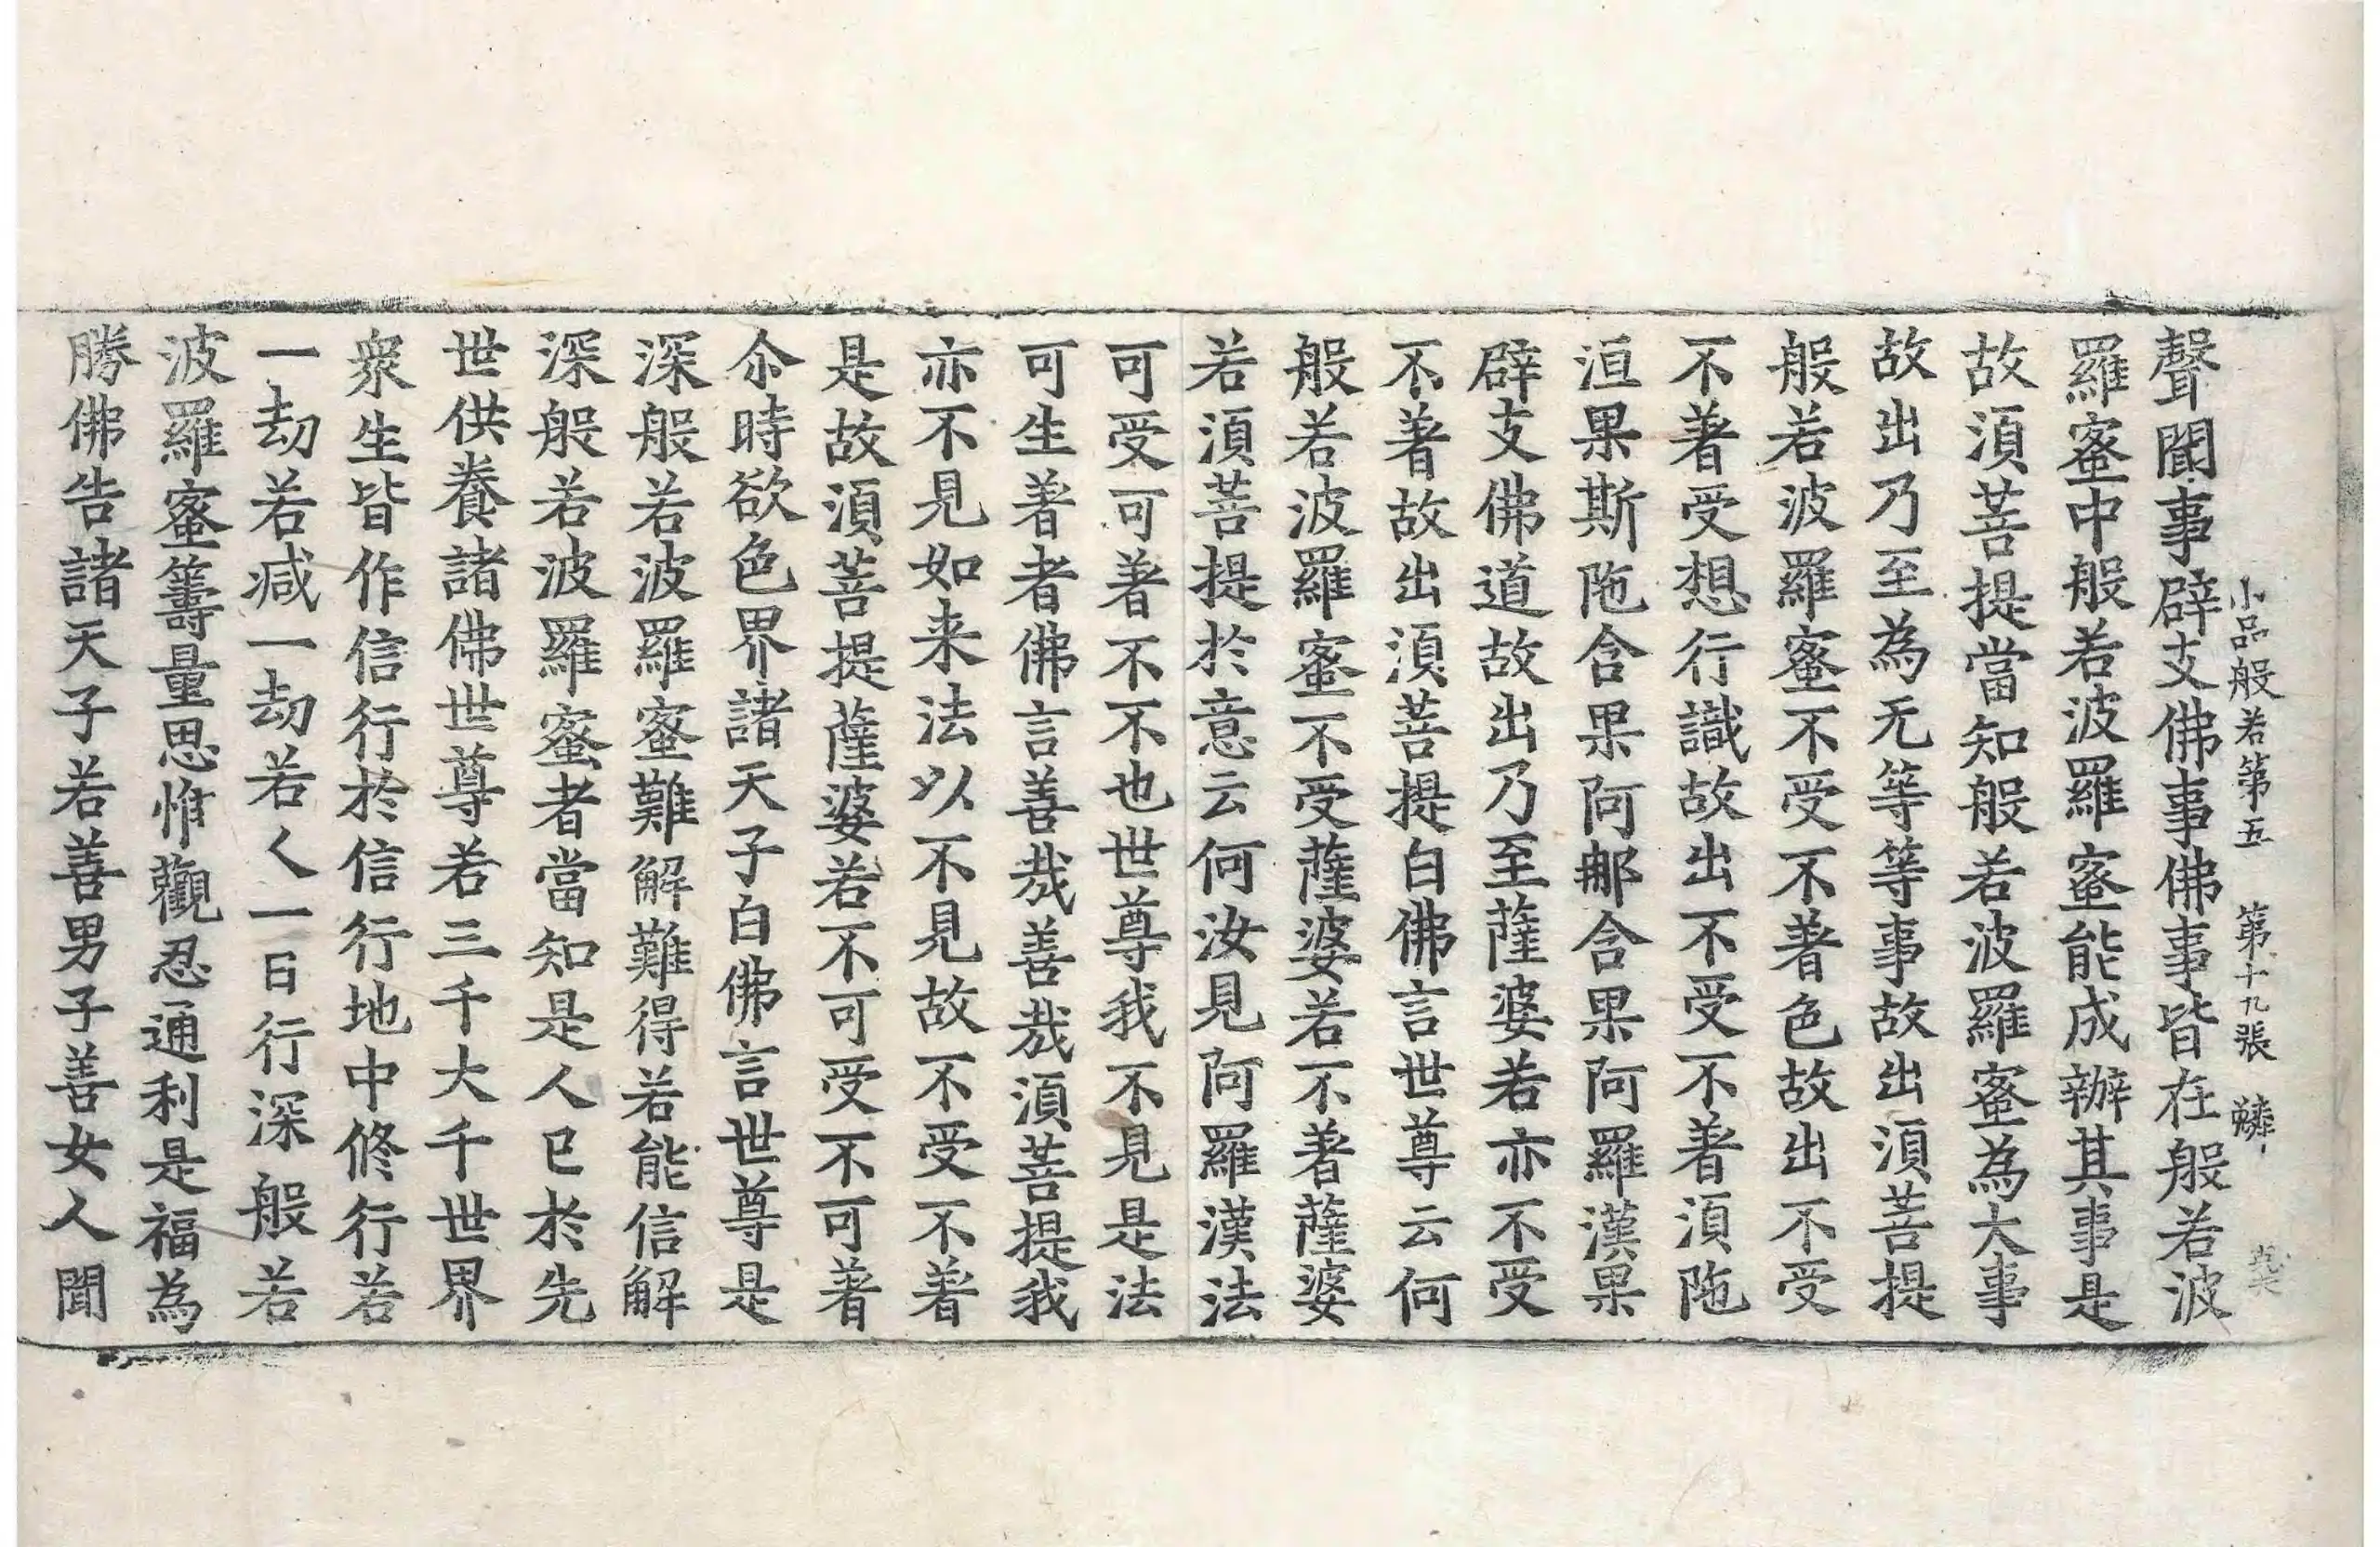 小品般若第五 第十九張
聲聞事辟支佛事佛事皆在般若波
羅蜜中般若波羅蜜能成辦其事是
故須菩提當知般若波羅蜜為大事
故出乃至為无等等事故出須菩提
般若波羅蜜不受不著色故出不受
不著受想行識故出不受不著須陁
洹果斯陁含果阿那含果阿羅漢果
辟支佛道故出乃至薩婆若亦不受
不著故出須菩提白佛言世尊云何
般若波羅蜜不受薩婆若不著薩婆
若須菩提於意云何汝見阿羅漢法
可受可著不不也世尊我不見是法
可生著者佛言善哉善哉須菩提我
亦不見如来法以不見故不受不著
是故須菩提薩婆若不可受不可著
尒時欲色界諸天子白佛言世尊是
深般若波羅蜜難解難得若能信解
深般若波羅蜜者當知是人已於先
世供養諸佛世尊若三千大千世界
衆生皆作信行於信行地中修行若
一劫若减一劫若人一日行深般若
波羅蜜籌量思惟觀忍通利是福為
勝佛告諸天子若善男子善女人聞